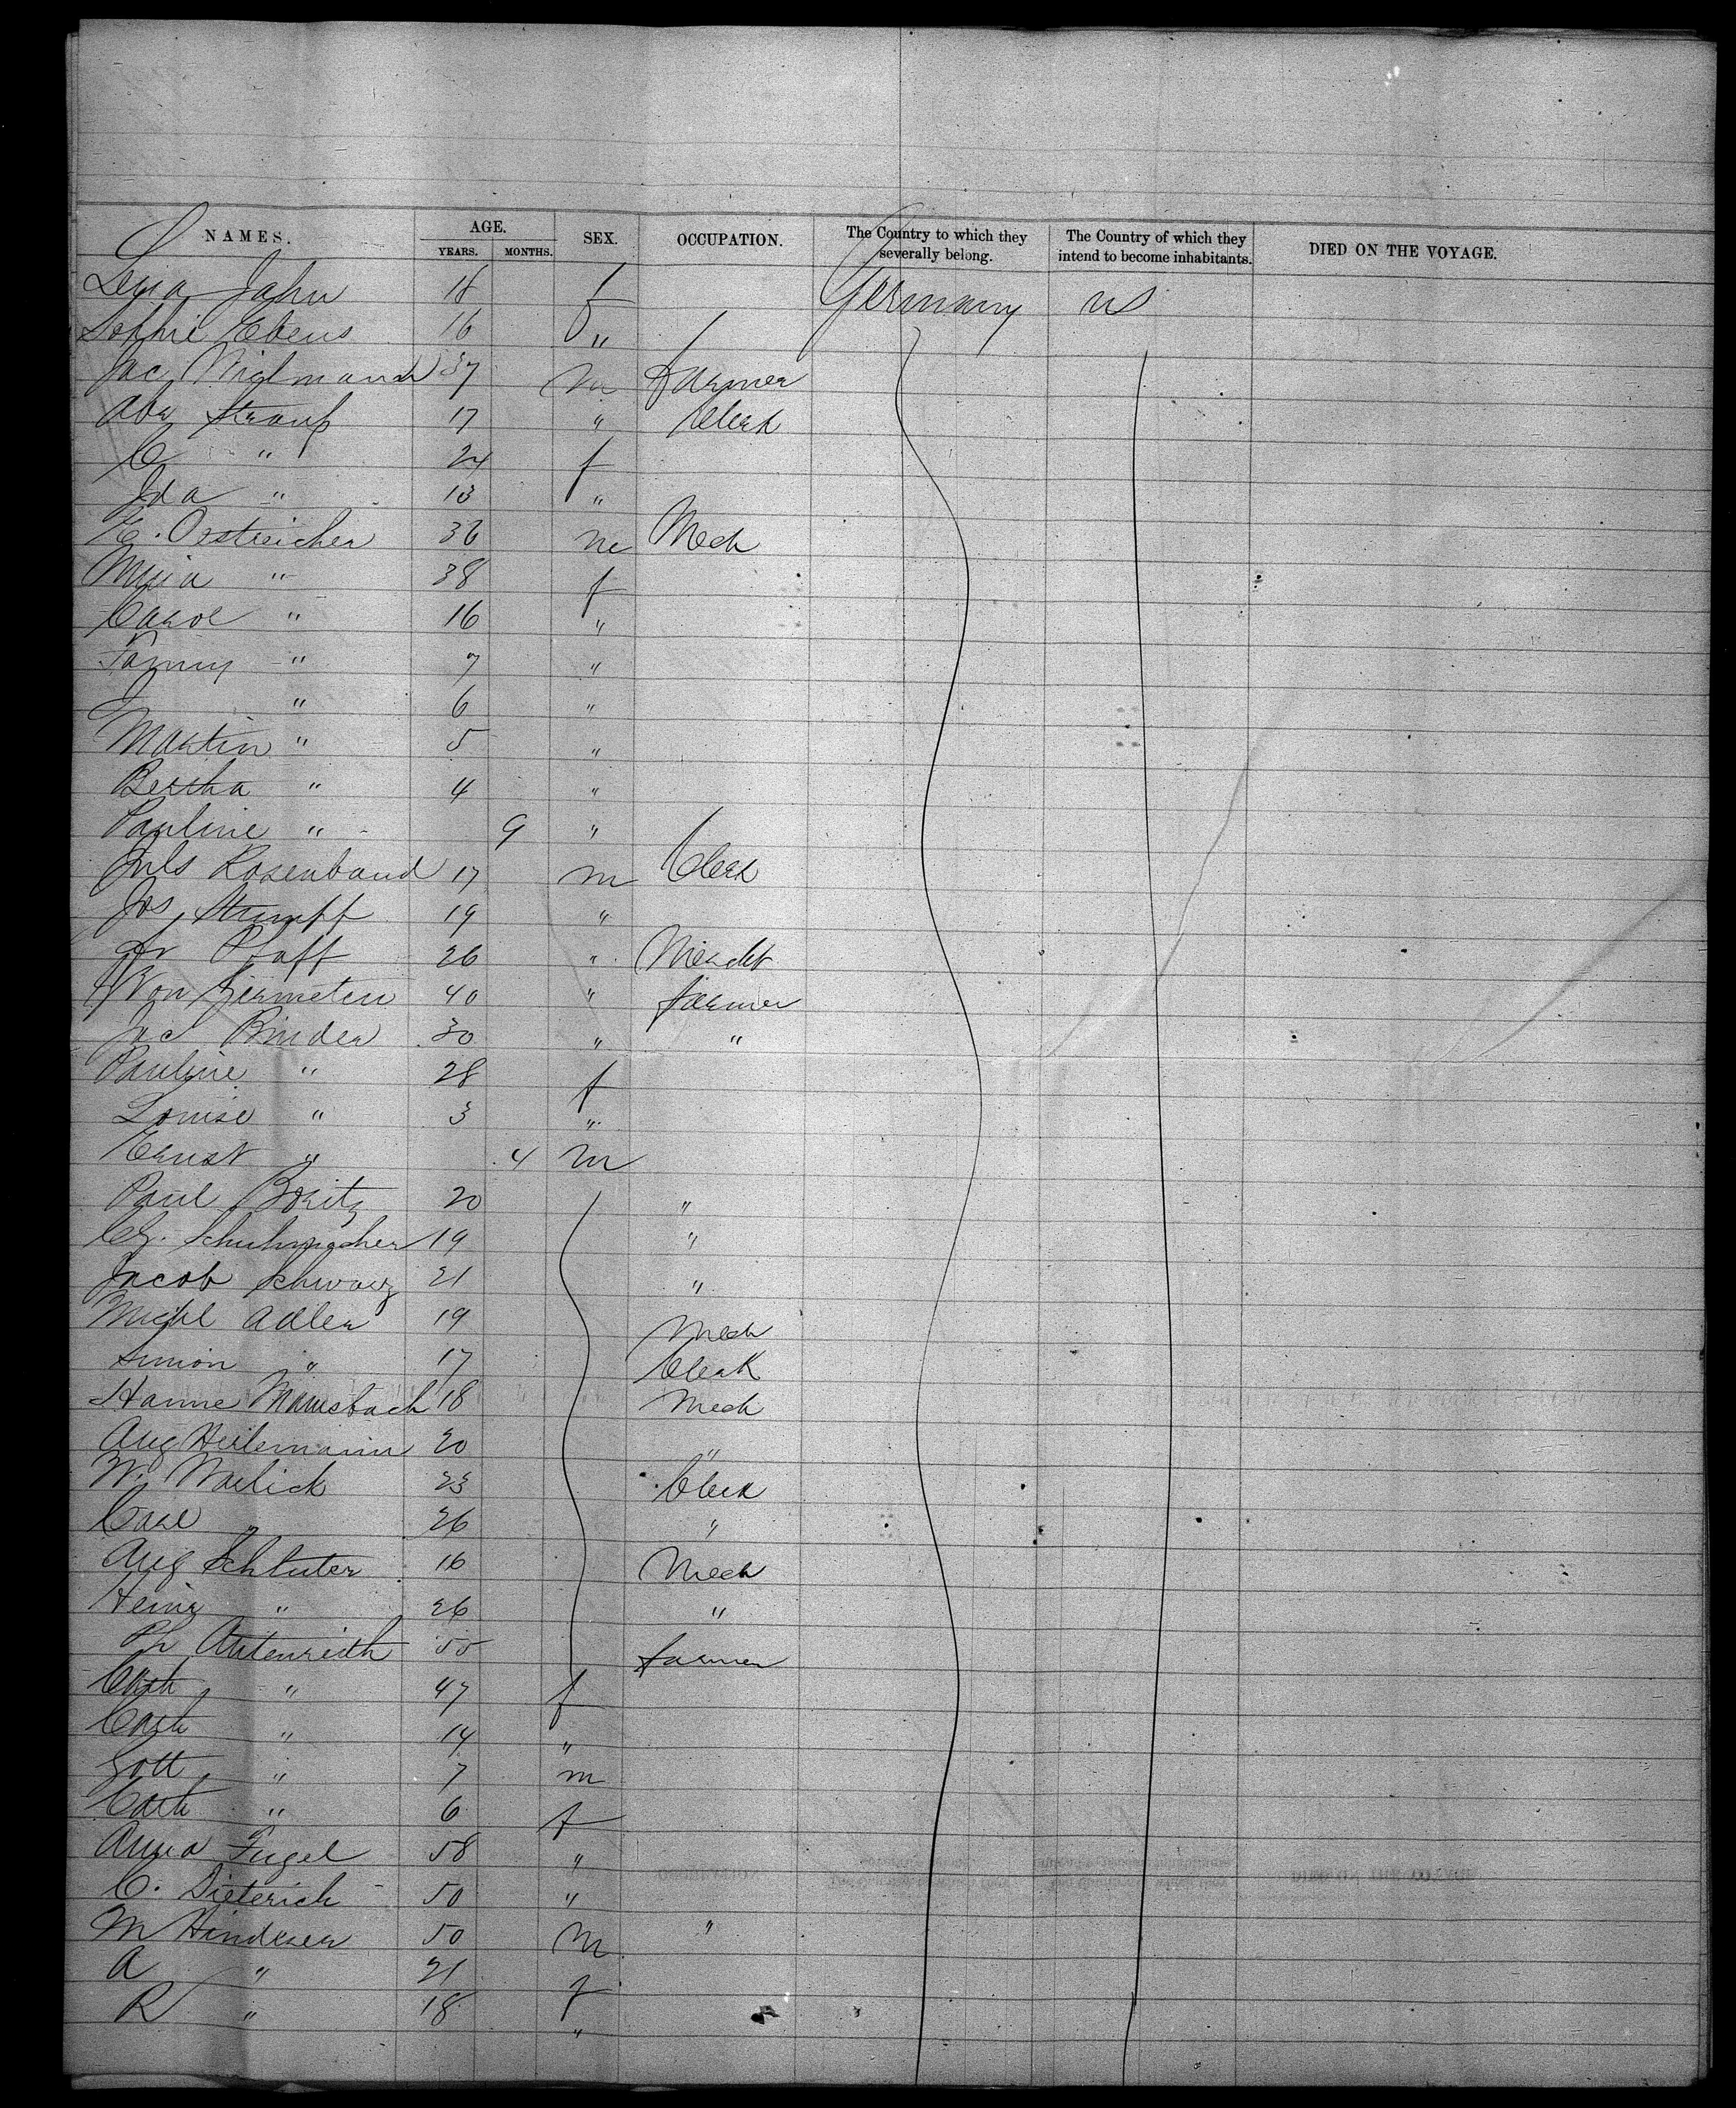 NAMES. AGE. YEARS. MONTHS. SEX. OCCUPATION. The Country to which they severally belong. The Country of which they intend to become inhabitants. DIED ON THE VOYAGE.
Lena Jahn 18 f Germany US
Sophie Ebens 16 "
Jac 37 m farmer
Abr Strauß 17 " Clerk
C " 24 f
Ida " 13 "
E. Oestreicher 36 m Mech
Maria " 38 f
Carol " 16 "
Fanny " 7 "
J " 6 "
Martin " 5 "
Bertha " 4 "
Pauline " 9 "
Juls Rosenband 17 m Clerk
Jos Stumpff 19 "
Fr Pfaff 26 " Mercht
Von 40 " farmer
Jac Binder 30 " "
Pauline " 28 f
Louise " 3 "
Ernst " 4 m
Paul Boritz 20 "
Chr. Schuhmacher 19 "
Jacob Schwarz 21 "
Michl Adler 19 Mech
Simon " 17 Clerk
Hanne Mannsbach 18 Mech
Aug Heilemann 20 "
W. Warlick 23 Clerk
Carl " 26 "
Aug Schluter 16 Mech
Heinr " 26 "
Ph Autenrieth 55 farmer
Cath " 47 f
Cath " 14 "
Gott " 7 m
Cath " 6 f
Anna Fugel 58 "
C. Dieterich 50 "
M 50 m "
A " 21 f
R " 18 "